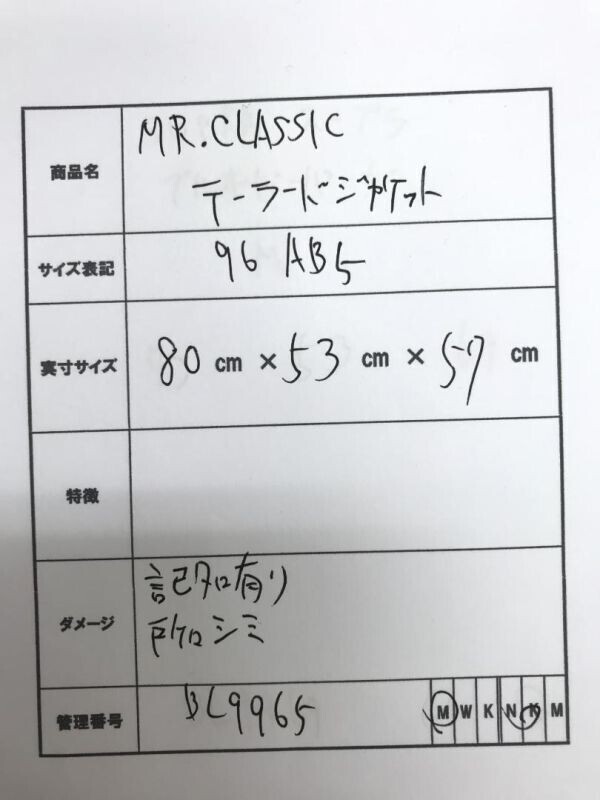 商品名
MR.CLASSIC
テーラードジャケット
サイズ表記
96 AB5
実寸サイズ
80 cm × 53 cm × 57 cm
特徴
ダメージ
記名有り
シミ
管理番号
BL9965
M W K N K M